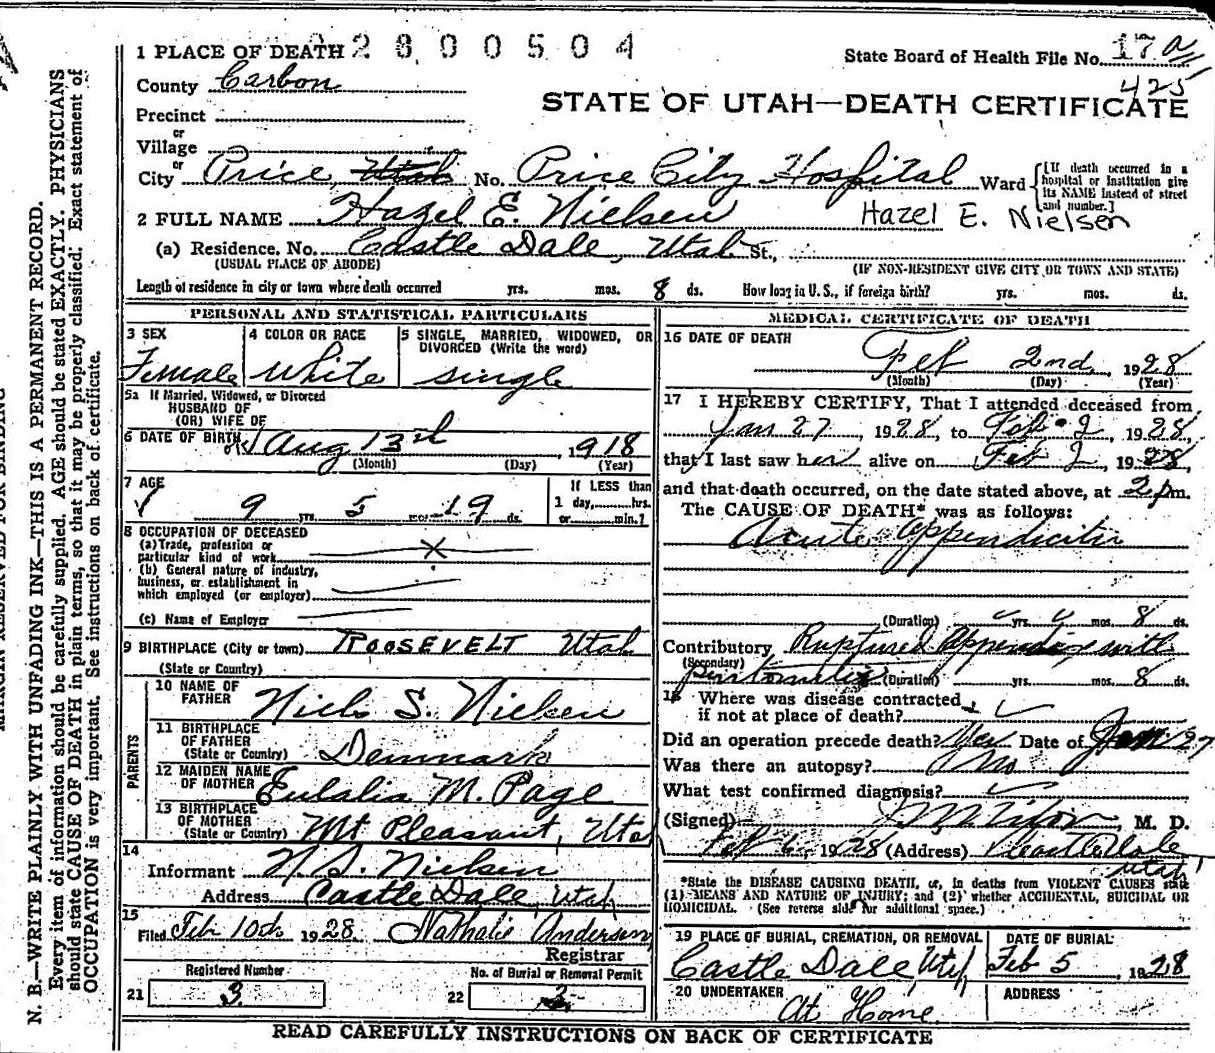 1 PLACE OF DEATH 2 8 0 0 5 0 4
State Board of Health File No. 17 a
425
County Carbon
STATE OF UTAH—DEATH CERTIFICATE
Precinct
or
Village
or
City Price, Utah No. Price City Hospital Ward
[If death occurred in a
hospital or institution give
its NAME instead of street
and number.]
2 FULL NAME Hazel E. Nielsen Hazel E. Nielsen
(a) Residence. No. Castle Dale, Utah St.,
(USUAL PLACE OF ABODE) (IF NON-RESIDENT GIVE CITY OR TOWN AND STATE)
Length of residence in city or town where death occurred yrs. mos. 8 ds. How long in U. S., if foreign birth? yrs. mos. ds.
PERSONAL AND STATISTICAL PARTICULARS
3 SEX
Female
4 COLOR OR RACE
White
5 SINGLE, MARRIED, WIDOWED, OR
DIVORCED (Write the word)
single
5a If Married, Widowed, or Divorced
HUSBAND OF
(OR) WIFE OF
6 DATE OF BIRTH Aug 13th, 1918
(Month) (Day) (Year)
7 AGE
9 yrs. 5 mos. 19 ds.
If LESS than
1 day, hrs.
or min.?
8 OCCUPATION OF DECEASED
(a) Trade, profession or
particular kind of work X
(b) General nature of industry,
business, or establishment in
which employed (or employer)
(c) Name of Employer
9 BIRTHPLACE (City or town) ROOSEVELT Utah
(State or Country)
PARENTS
10 NAME OF
FATHER Niels S. Nielsen
11 BIRTHPLACE
OF FATHER
(State or Country) Denmark
12 MAIDEN NAME
OF MOTHER Eulalia M. Page
13 BIRTHPLACE
OF MOTHER
(State or Country) Mt Pleasant, Utah
14
Informant N. S. Nielsen
Address Castle Dale, Utah
15
Filed Feb 10th 1928. Nathalie Anderson
Registrar
Registered Number
21 3
No. of Burial or Removal Permit
22 3
MEDICAL CERTIFICATE OF DEATH
16 DATE OF DEATH
Feb 2nd, 1928
(Month) (Day) (Year)
17 I HEREBY CERTIFY, That I attended deceased from
Jan 27, 1928, to Feb 2, 1928
that I last saw her alive on Feb 2, 1928,
and that death occurred, on the date stated above, at 2 pm.
The CAUSE OF DEATH* was as follows:
Acute appendicitis
(Duration) yrs. mos. 8 ds.
Contributory Ruptured Appendix with
(Secondary)
peritonitis (Duration) yrs. mos. 8 ds.
18 Where was disease contracted
if not at place of death?
Did an operation precede death? Yes Date of Jan 27
Was there an autopsy? no
What test confirmed diagnosis?
(Signed) M. D.
Feb 6, 1928 (Address) Castle Dale
Utah
*State the DISEASE CAUSING DEATH, or, in deaths from VIOLENT CAUSES state
(1) MEANS AND NATURE OF INJURY; and (2) whether ACCIDENTAL, SUICIDAL OR
HOMICIDAL. (See reverse side for additional space.)
19 PLACE OF BURIAL, CREMATION, OR REMOVAL
Castle Dale, Utah
DATE OF BURIAL
Feb 5, 1928
20 UNDERTAKER
At Home
ADDRESS
READ CAREFULLY INSTRUCTIONS ON BACK OF CERTIFICATE
MARGIN RESERVED FOR BINDING
N. B.—WRITE PLAINLY WITH UNFADING INK—THIS IS A PERMANENT RECORD.
Every item of information should be carefully supplied. AGE should be stated EXACTLY. PHYSICIANS
should state CAUSE OF DEATH in plain terms, so that it may be properly classified. Exact statement of
OCCUPATION is very important. See instructions on back of certificate.